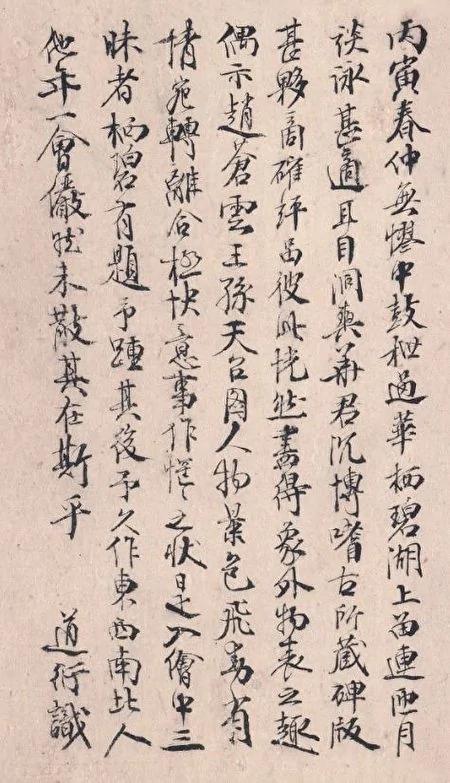 丙寅春仲無憀中鼓枻過華栖碧湖上留連匝月
談詠甚適耳目洞爽華君沉博嗜古所藏碑版
甚夥商確評品彼此恍然盡得象外物表之趣
偶示趙蒼雲王孫天台圖人物景色飛動有
情宛轉離合極快意事作之狀是入繪中三
昧者栖碧有題予踵其後予久作東西南北人
他年一會儼然未散其在斯乎 道衍識